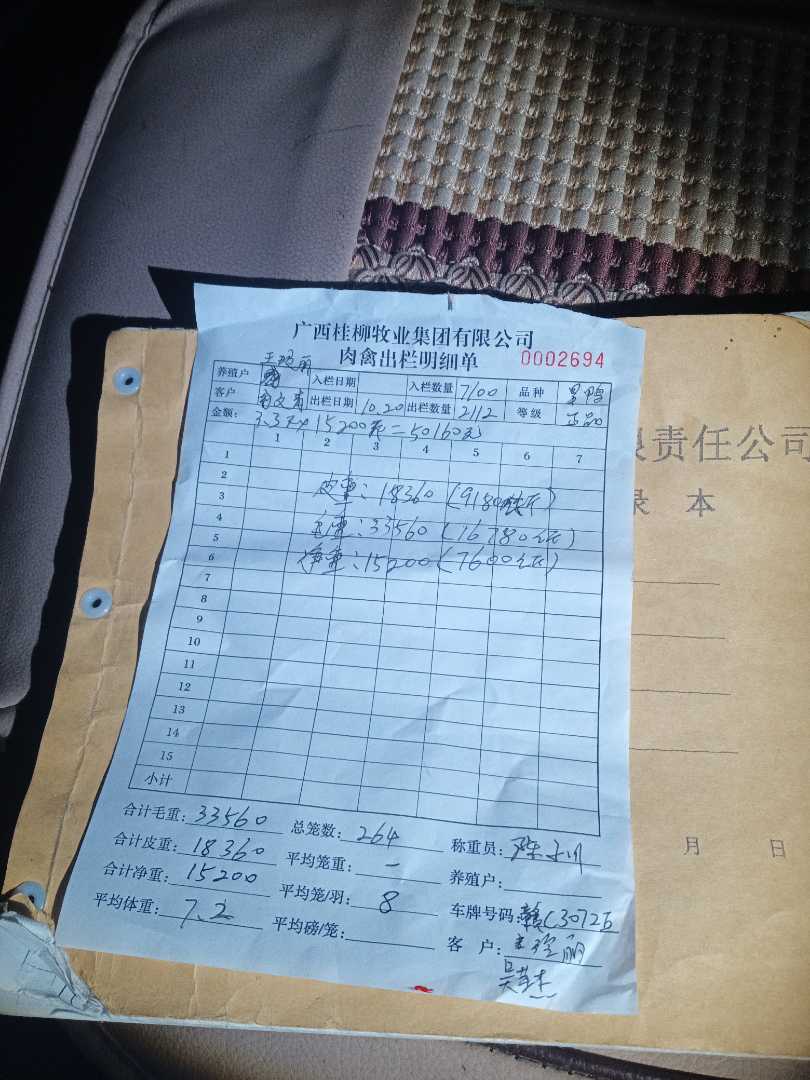 广西桂柳牧业集团有限公司
肉禽出栏明细单 0002694
养殖户 入栏日期 入栏数量 7100 品种 黑鸭
客户 出栏日期 10.20 出栏数量 2112 等级 正品
金额: 3.3元×15200斤=50160元
1 2 3 4 5 6 7
1
2
3 皮重:18360(9180公斤)
4
5 毛重:33560(16780公斤)
6 净重:15200(7600公斤)
7
8
9
10
11
12
13
14
15
小计
合计毛重: 33560 总笼数: 264 称重员:
合计皮重: 18360 平均笼重: 一 养殖户:
合计净重: 15200 平均笼/羽: 8 车牌号码: 赣C3072B
平均体重: 7.2 平均磅/笼: 客 户:
限责任公司
录 本
月 日